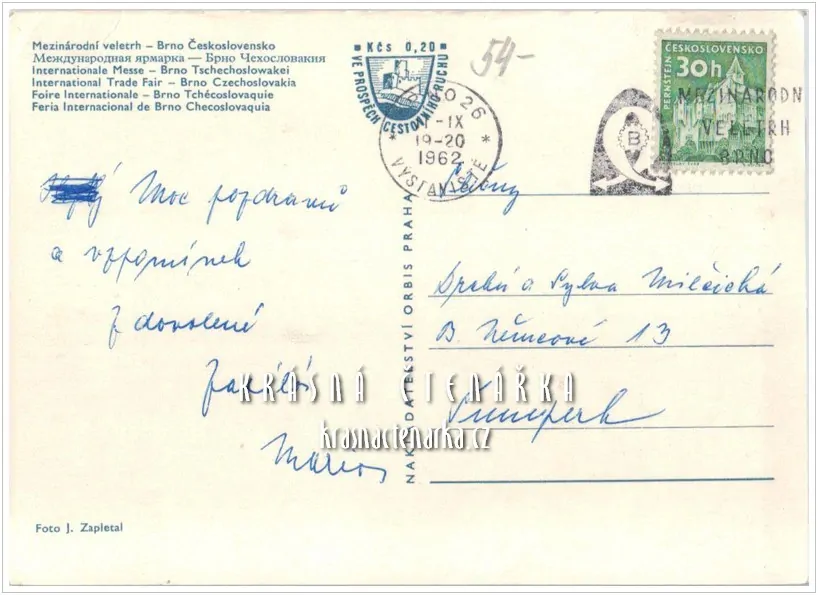 Mezinárodní veletrh – Brno Československo
Международная ярмарка — Брно Чехословакия
Internationale Messe – Brno Tschechoslowakei
International Trade Fair – Brno Czechoslovakia
Foire Internationale – Brno Tchécoslovaquie
Feria Internacional de Brno Checoslovaquia
Kčs 0,20
VE PROSPĚCH CESTOVNÍHO RUCHU
54-
BRNO 26
-IX
19-20
1962
VÝSTAVIŠTĚ
B
MEZINÁRODN
VELETRH
BRNO
PERNŠTEJN
ČESKOSLOVENSKO
30h
Moc pozdravů
a vzpomínek
z dovolené
zasílá
NAKLADATELSTVÍ ORBIS PRAHA
a Sylva Milčická
B. Němcové 13
Šumperk
KRÁSNÁ ČTENÁŘKA
krasnactenarka.cz
Foto J. Zapletal